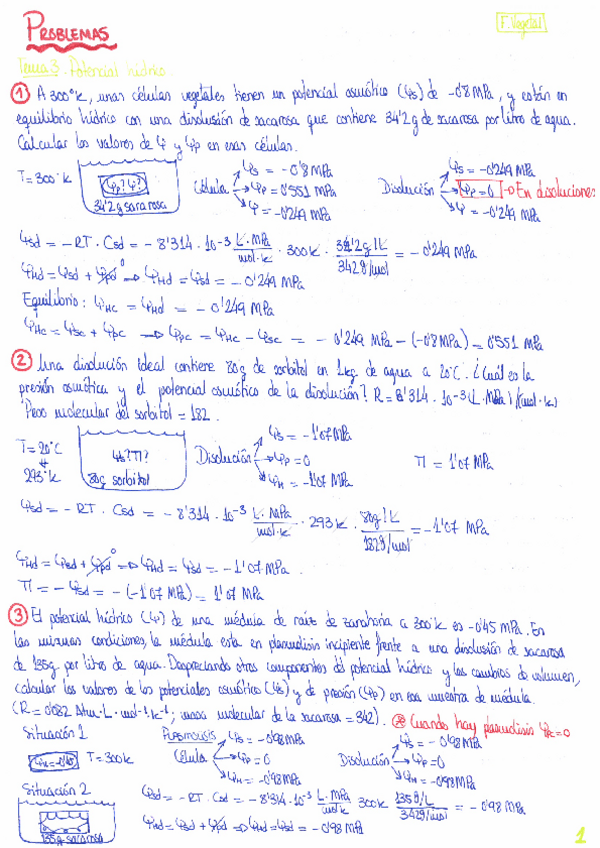 PROBLEMAS
F. Vegetal
Tema 3. Potencial hídrico.
① A 300°K, unas células vegetales tienen un potencial osmótico (Ψs) de -0'8 MPa, y están en
equilibrio hídrico con una disolusión de sacarosa que contiene 34'2 g de sacarosa por litro de agua.
Calcular los valores de Ψ y Ψp en esas células.
T = 300°K
Ψp? Ψ?
34'2 g sacarosa
Célula
Ψs = -0'8 MPa
Ψp = 0'551 MPa
Ψ = -0'249 MPa
Disolución
Ψs = -0'249 MPa
Ψp = 0 → En disoluciones
Ψ = -0'249 MPa
Ψsd = -RT · Csd = -8'314 · 10⁻³ L·MPa/mol·K · 300K · 34'2 g/L / 342 g/mol = -0'249 MPa
ΨHd = Ψsd + Ψpd⁰ → ΨHd = Ψsd = -0'249 MPa
Equilibrio: ΨHc = ΨHd = -0'249 MPa
ΨHc = Ψsc + Ψpc → Ψpc = ΨHc - Ψsc = -0'249 MPa - (-0'8 MPa) = 0'551 MPa
② Una disolución ideal contiene 80g de sorbitol en 1kg de agua a 20°C. ¿Cuál es la
presión osmótica y el potencial osmótico de la disolución? R = 8'314 · 10⁻³ (L·MPa)/(mol·K)
Peso molecular del sorbitol = 182.
T = 20°C
293°K
Ψs? Π?
80g sorbitol
Disolución
Ψs = -1'07 MPa
Ψp = 0
ΨH = -1'07 MPa
Π = 1'07 MPa
Ψsd = -RT · Csd = -8'314 · 10⁻³ L·MPa/mol·K · 293K · 80g/L / 182g/mol = -1'07 MPa
ΨHd = Ψsd + Ψpd⁰ → ΨHd = Ψsd = -1'07 MPa.
Π = -Ψs = -(-1'07 MPa) = 1'07 MPa
③ El potencial hídrico (Ψ) de una médula de raíz de zanahoria a 300°K es -0'45 MPa. En
las mismas condiciones, la médula esta en plasmolisis incipiente frente a una disolusión de sacarosa
de 135g por litro de agua. Despreciando otros componentes del potencial hídrico y los cambios de volumen,
calcular los valores de los potenciales osmótico (Ψs) y de presión (Ψp) en esa muestra de médula.
(R = 0'082 Atm·L·mol⁻¹·K⁻¹; masa molecular de la sacarosa = 342). ⊛ Cuando hay plasmolisis Ψpc=0
Situación 1
T = 300K
PLASMOLISIS
Célula
Ψs = -0'98 MPa
Ψp = 0
ΨH = -0'98 MPa
Disolución
Ψs = -0'98 MPa
Ψp = 0
ΨH = -0'98 MPa
Situación 2
135g sacarosa
Ψsd = -RT · Csd = -8'314 · 10⁻³ L·MPa/mol·K 300K 135g/L / 342g/mol = -0'98 MPa
ΨHd = Ψsd + Ψpd ⇒ ΨHd = Ψsd = -0'98 MPa
1